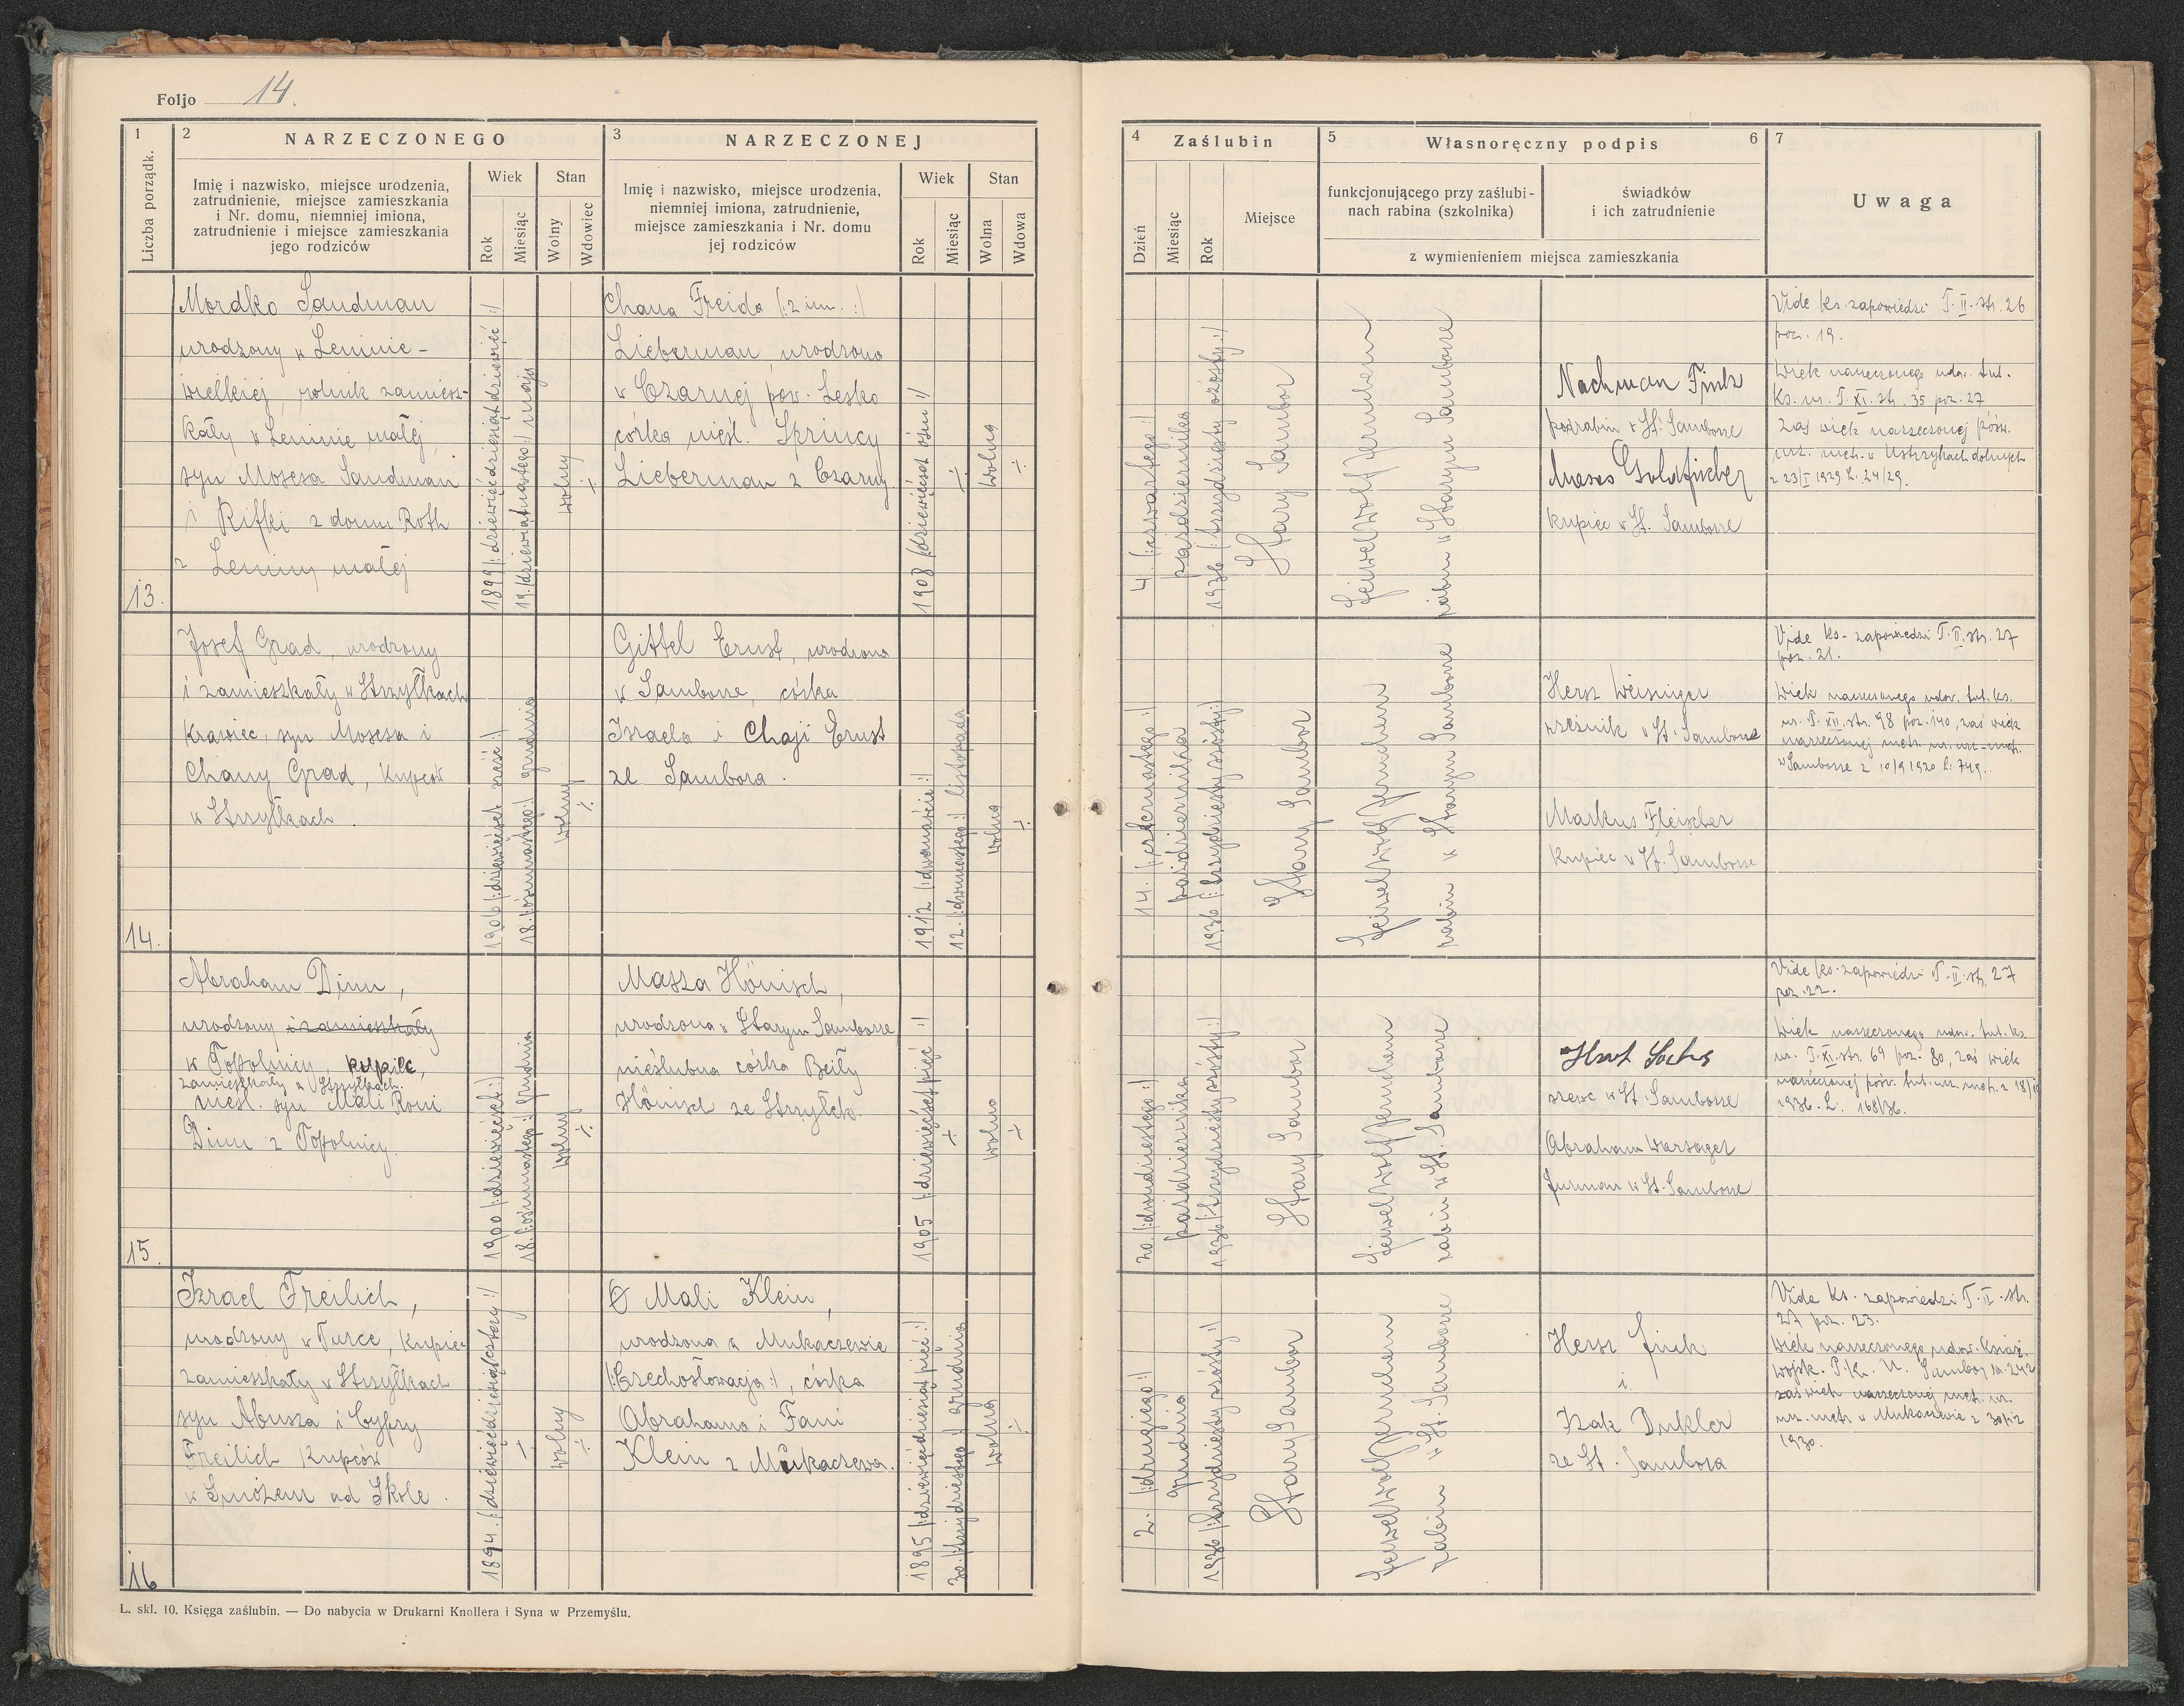 Foljo 14.
1
2 NARZECZONEGO
3 NARZECZONEJ
Liczba porządk.
Imię i nazwisko, miejsce urodzenia,
zatrudnienie, miejsce zamieszkania
i Nr. domu, niemniej imiona,
zatrudnienie i miejsce zamieszkania
jego rodziców
Wiek
Rok
Miesiąc
Stan
Wolny
Wdowiec
Imię i nazwisko, miejsce urodzenia,
niemniej imiona, zatrudnienie,
miejsce zamieszkania i Nr. domu
jej rodziców
Wiek
Rok
Miesiąc
Stan
Wolna
Wdowa
4 Zaślubin
Dzień
Miesiąc
Rok
Miejsce
5 Własnoręczny podpis 6
funkcjonującego przy zaślubi-
nach rabina (szkolnika)
świadków
i ich zatrudnienie
z wymienieniem miejsca zamieszkania
7
Uwaga
13.
Mordko Sandman
urodzony w Leninie-
wielkiej, rolnik zamiesz-
kały w Leninie małej,
syn Mosesa Sandman
i Rifki z domu Roth
z Leniny małej
1899 /:dziewięćdziesiątdziewięć:/
19. /dziewiętnastego:/ maja
wolny
÷
Chana Freida /:2 im.:/
Lieberman, urodzona
w Czarnej pow. Lesko
córka nieśl. Sprincy
Lieberman z Czarny.
1908 /dziewięćset ośm:/
÷
wolna
÷
4. /:czwartego:/
października
1936 /:trzydziesty szósty:/
Stary Sambor
rabin w Starym Samborze
Nachman Fink
podrabin w St. Samborze
Moses Goldfischer
kupiec w St. Samborze
Vide ks. zapowiedzi T. II. str. 26
poz. 19.
Wiek narzeczonego udow. tut.
ks. ur. T. XI. str. 35 poz. 27
zaś wiek narzeczonej pośw.
urz. metr. w Ustrzykach dolnych
z 23/I 1929 L. 24/29.
14.
Josef Grad, urodzony
i zamieszkały w Strzyłkach
krawiec, syn Mosesa i
Chany Grad, kupców
w Strzyłkach.
1906 /:dziewięćset sześć:/
18. /:ośmnastego:/ grudnia
wolny
÷
Gittel Ernst, urodzona
w Samborze, córka
Izraela i Chaji Ernst
ze Sambora.
1912 /:dwanaście:/
12. /:dwunastego:/ listopada
wolna
÷
14. /:czternastego:/
października
1936 /:trzydziesty szósty:/
Stary Sambor
rabin w Starym Samborze
Hersz Weisinger
rzeźnik w St. Samborze
Markus Fleischer
kupiec w St. Samborze
Vide ks. zapowiedzi T. II. str. 27
poz. 21.
Wiek narzeczonego udow. tut. ks.
ur. T. XII. str. 98 poz. 140, zaś wiek
narzeczonej metr. ur. urz. metr.
w Samborze z 10/9 1920 L: 749.
15.
Abraham Dinn,
urodzony i zamieszkały
w Topolnicy, kupiec,
zamieszkały w Strzyłkach.
nieśl. syn Mali Roni
Dinn z Topolnicy.
1900 /:dziewięćset:/
18. /:ośmnastego:/ grudnia
wolny
÷
Massa Hönisch,
urodzona w Starym Samborze
nieślubna córka Beily
Hönisch ze Strzyłek.
1905 /:dziewięćset pięć:/
÷
wolna
÷
20. /:dwudziestego:/
października
1936 /:trzydziesty szósty:/
Stary Sambor
rabin w St. Samborze
szewc w St. Samborze
Abraham Warsager
furman w St. Samborze
Vide ks. zapowiedzi T. II. str. 27
poz. 22.
Wiek narzeczonego udow. tut. ks.
ur. T. XI. str. 69 poz. 80, zaś wiek
narzeczonej pośw. tut. urz. metr. z 18/
1936. L. 168/36.
16
Izrael Freilich,
urodzony w Turce, kupiec
zamieszkały w Strzyłkach
syn Abusza i Cypry
Freilich kupców
w Smożem ad Skole.
1894. /:dziewięćdziesiątcztery:/
÷
wolny
÷
Mali Klein,
urodzona w Mukaczewie
/:Czechosłowacja:/, córka
Abrahama i Fani
Klein z Mukaczewa.
1895 /:dziewięćdziesiątpięć:/
30. /:trzydziestego:/ grudnia
wolna
÷
2. /:drugiego:/
grudnia
1936 /:trzydziesty szósty:/
Stary Sambor
rabin w St. Samborze
Hersz Fink
i
Izak Dukler
ze St. Sambora
Vide ks. zapowiedzi T. II. str.
27 poz. 23.
Wiek narzeczonego udow. Książ.
wojsk. P.K.U. Sambor nr. 242
zaś wiek narzeczonej metr. ur.
urz. metr. w Mukaczewie z 30/12
1930.
L. skl. 10. Księga zaślubin. — Do nabycia w Drukarni Knollera i Syna w Przemyślu.